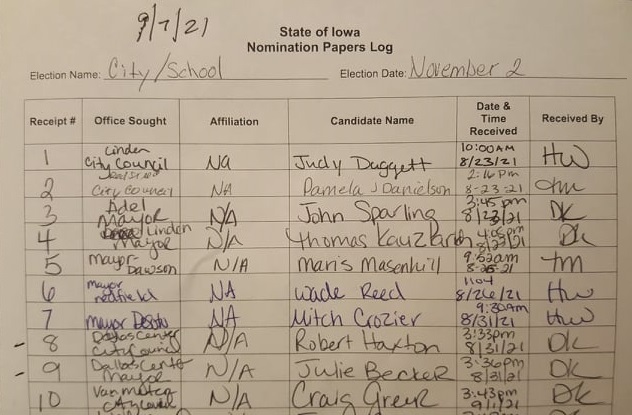 9/7/21
State of Iowa
Nomination Papers Log
Election Name: City/School Election Date: November 2
Receipt # Office Sought Affiliation Candidate Name Date & Time Received Received By
1 Linden City Council NA Judy Daggett 10:00AM 8/23/21 HW
2 City Council NA Pamela J Danielson 2:16 Pm 8-23-21
3 Adel Mayor N/A John Sparling 3:45 pm 8/23/21 DK
4 Linden Mayor N/A Thomas 4:05 pm DK
5 Mayor-Dawson N/A Maris Masenhill 9:52am
6 mayor redfield NA Wade Reed 1104 8/26/21 HW
7 mayor Desoto NA Mitch Crozier 9:30AM 8/31/21 HW
8 Dallas Center City Council N/A Robert Haxton 3:33pm 8/31/21 DK
9 Dallas Center Mayor N/A Julie Becker 3:36pm 8/31/21 DK
10 Van meter City Council N/A Craig Greer 3:43pm 9/1/21 DK